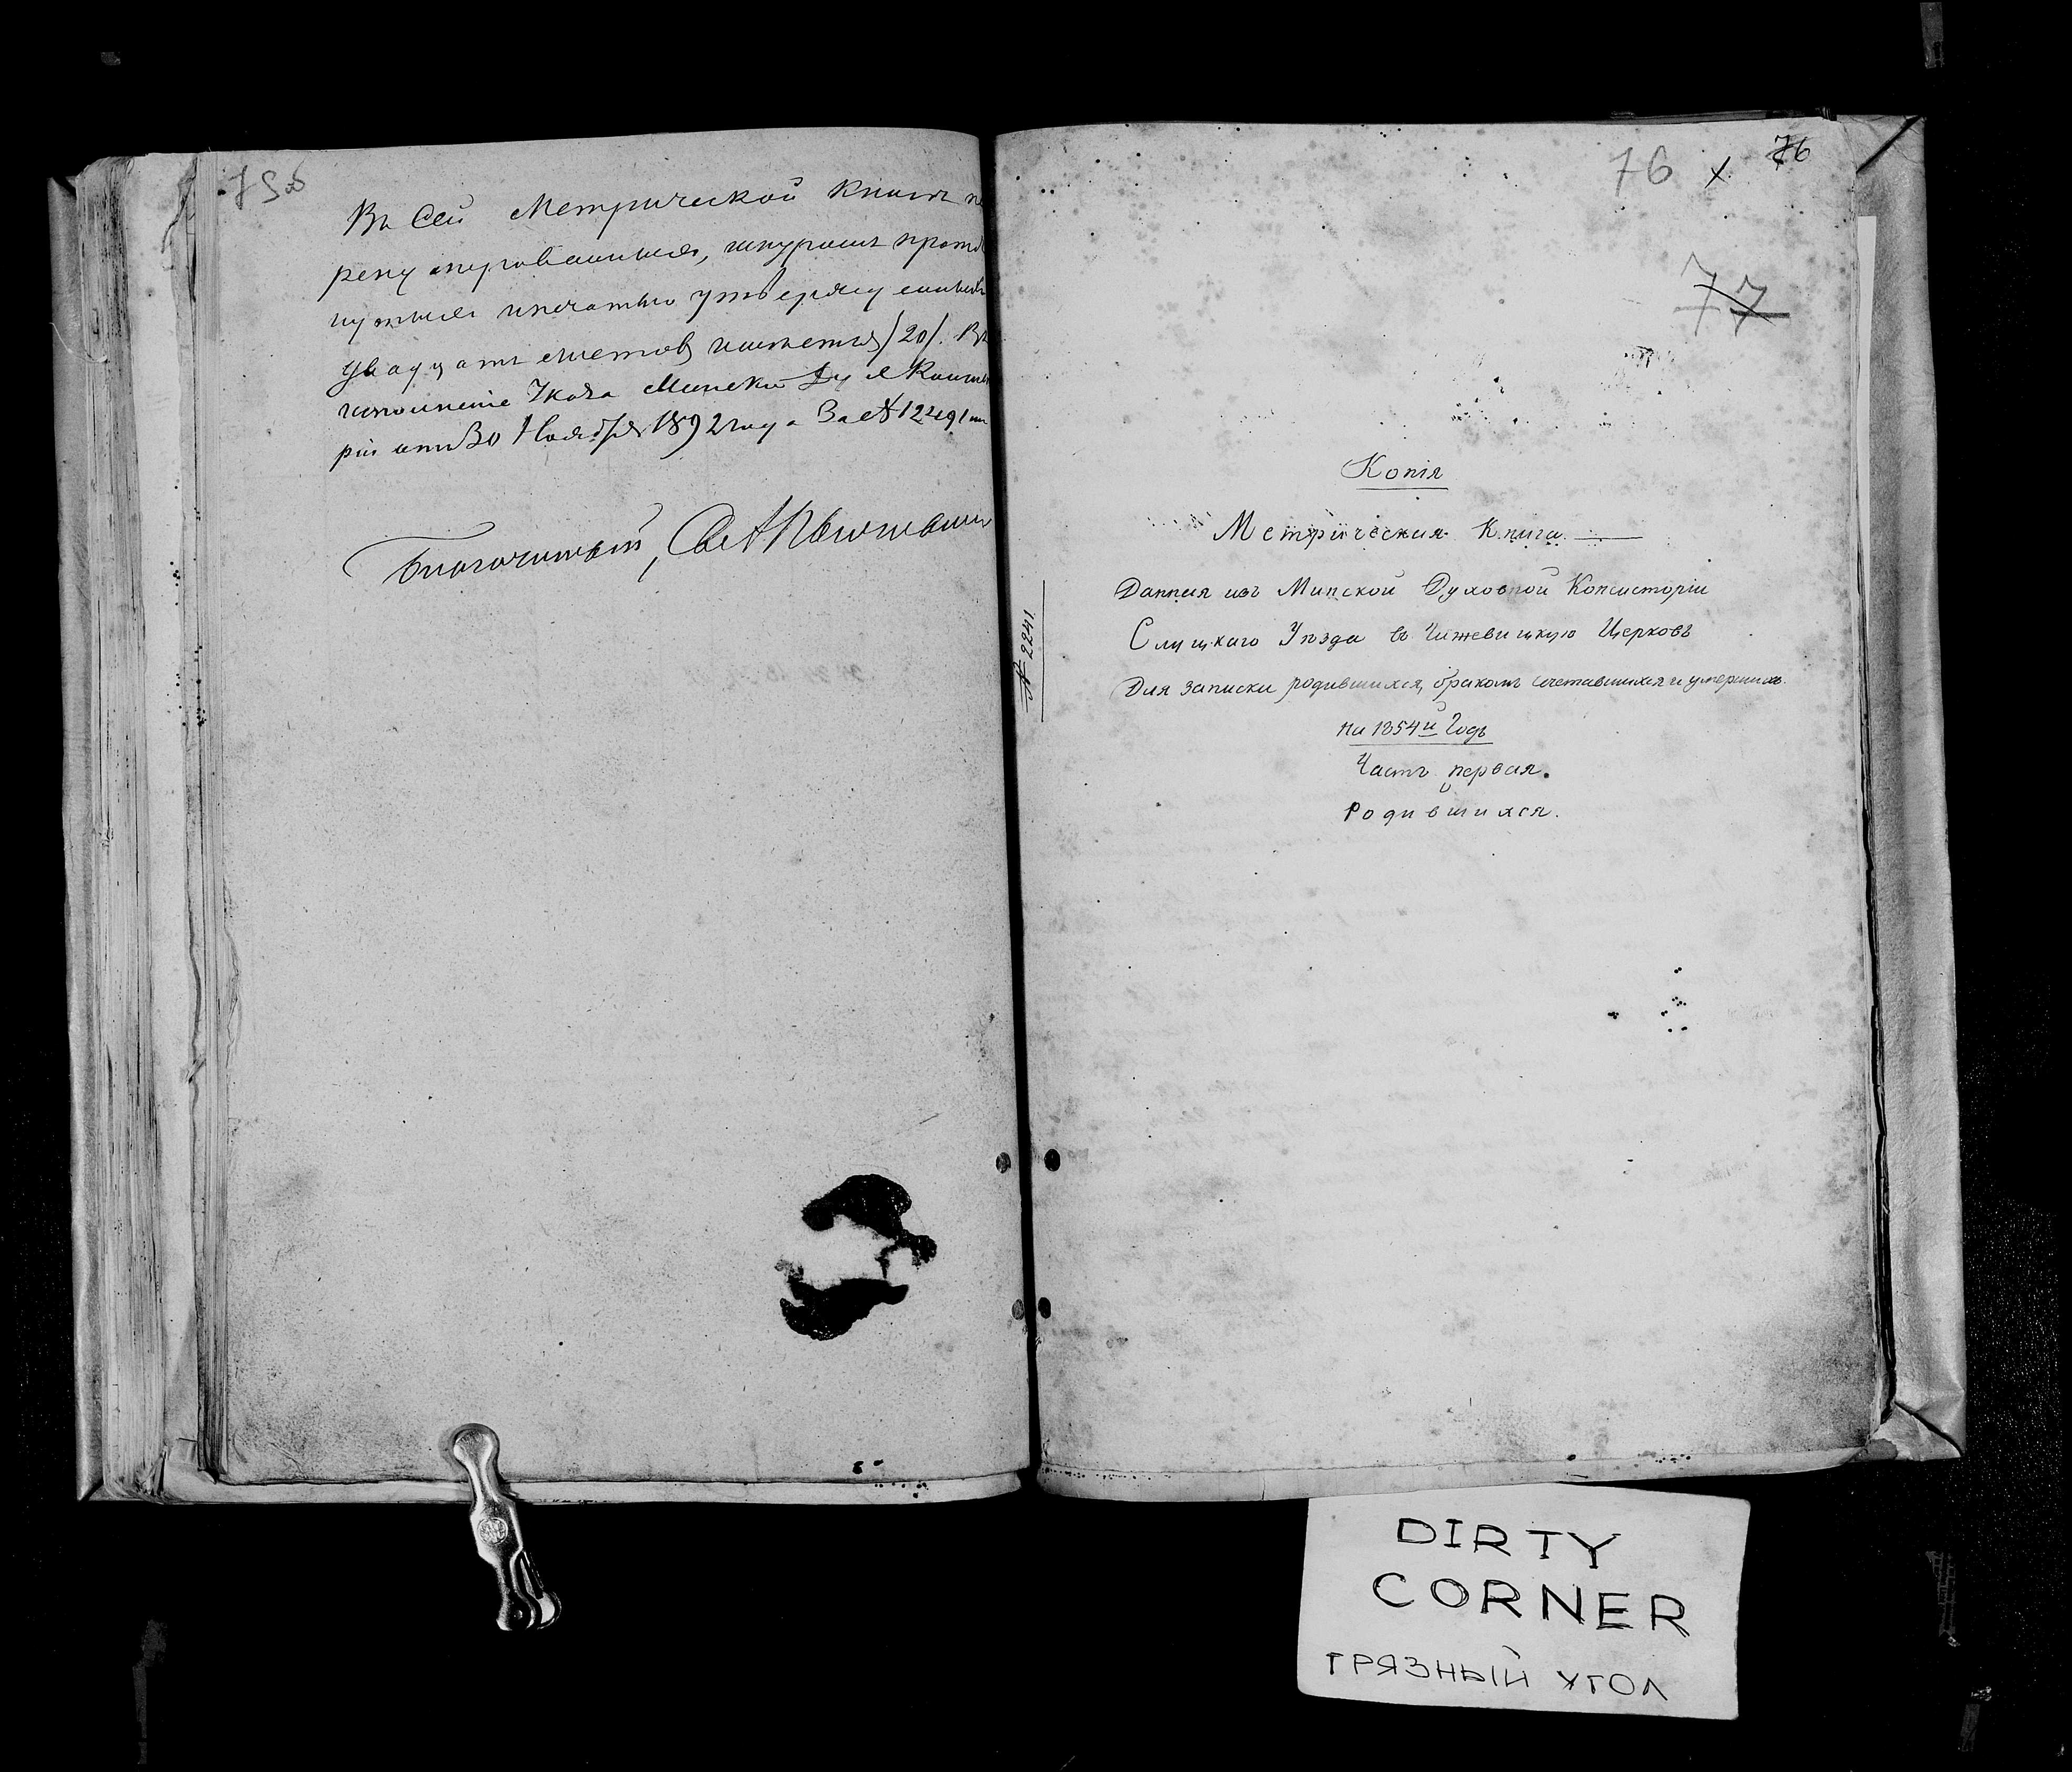 75об
Въ Сей Метрической Книгѣ
шнуромъ
печатью
двадцать листовъ имѣется /20/. Въ
исполненіе Указа Минской Ду. Консисто
ріи отъ 30 Ноября 1892 года За № 12491
Благочинный, Свящ
76 х 76
77
Копія
Метрическая Книга
Данная изъ Минской Духовной Консисторіи
Слуцкаго Уѣзда въ Чижевицкую Церковь
Для записки родившихся, бракомъ сочетавшихся и умершихъ.
на 1854й Годъ
Часть первая.
Родившихся.
№ 2241
DIRTY
CORNER
ГРЯЗНЫЙ УГОЛ